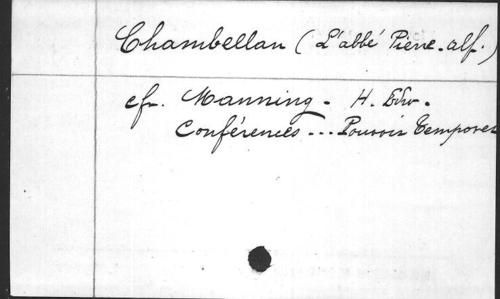 Chambellan (L'abbé Pierre-alf.)
cfr. Manning - H. Edw.
Conférences ... Pouvoir temporel